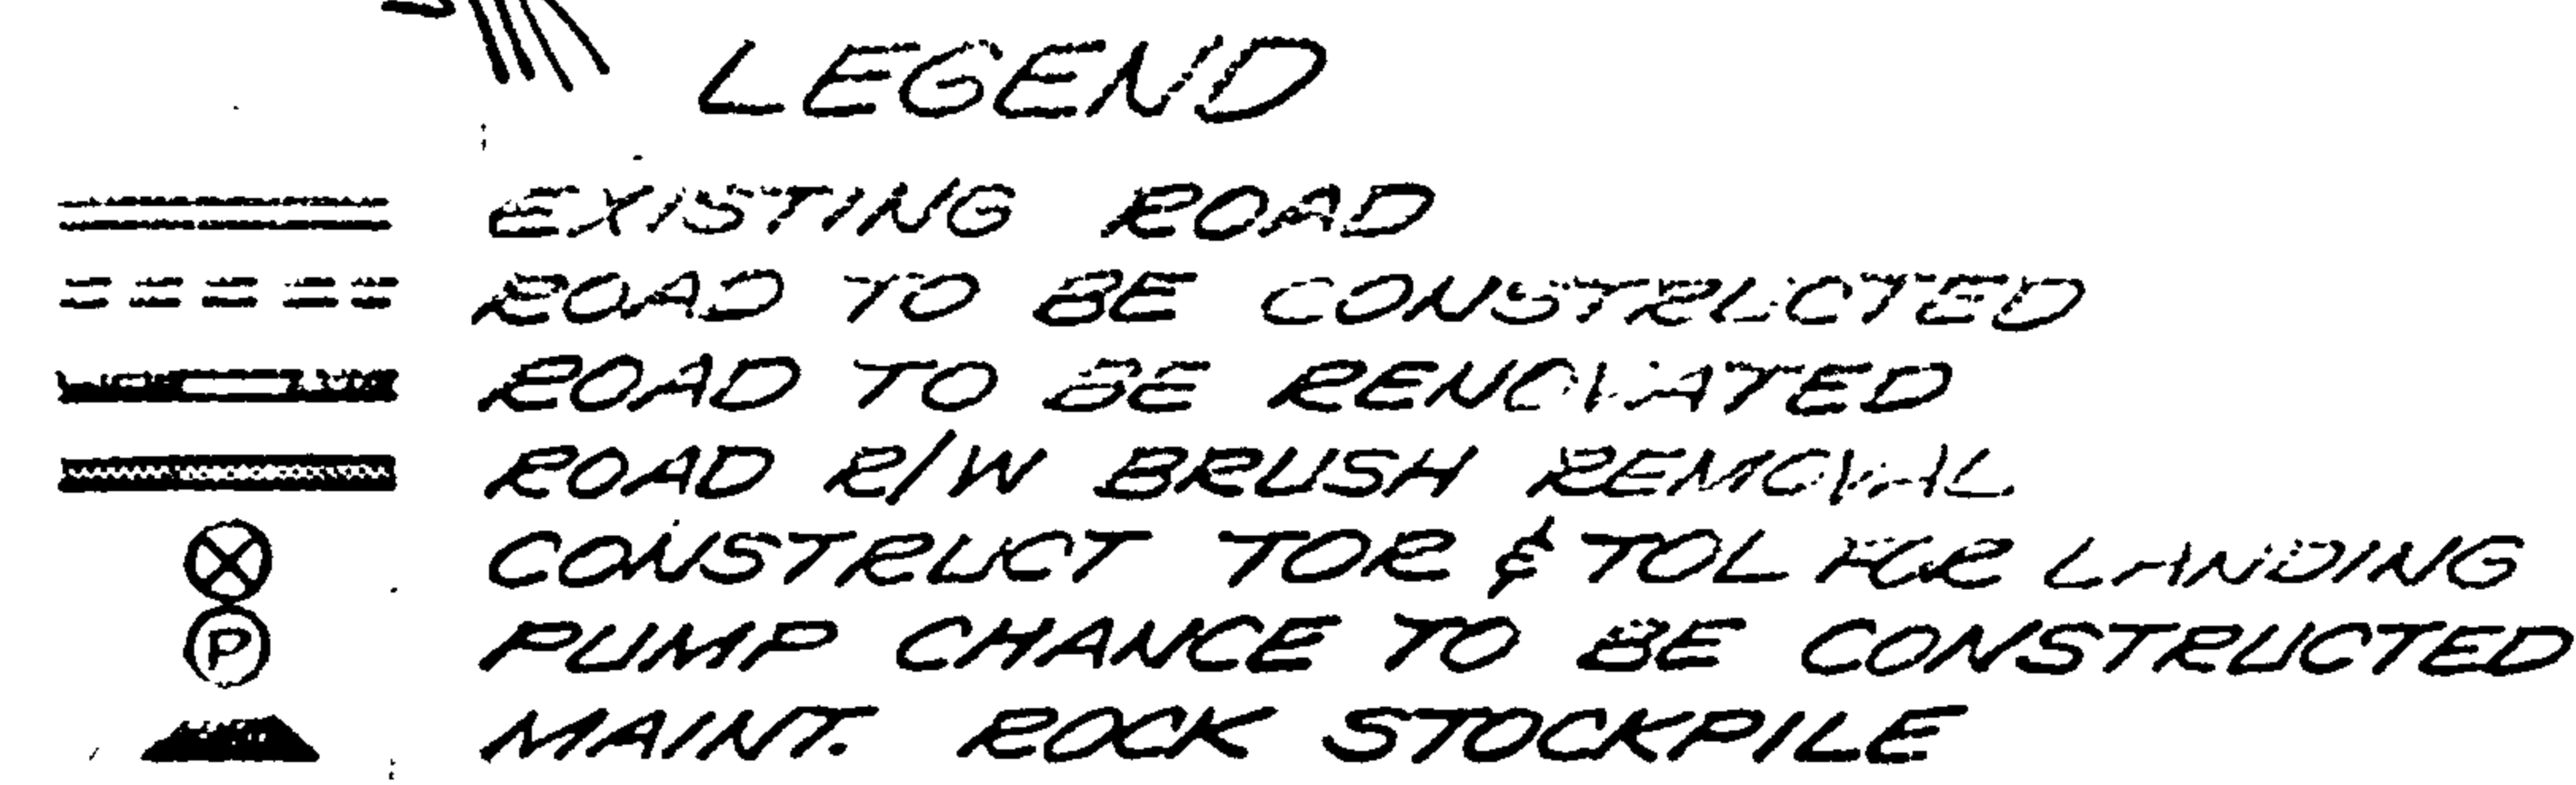 LEGEND
EXISTING ROAD
ROAD TO BE CONSTRUCTED
ROAD TO BE RENOVATED
ROAD R/W BRUSH REMOVAL
CONSTRUCT TOR & TOL FOR LANDING
P PUMP CHANCE TO BE CONSTRUCTED
MAINT. ROCK STOCKPILE